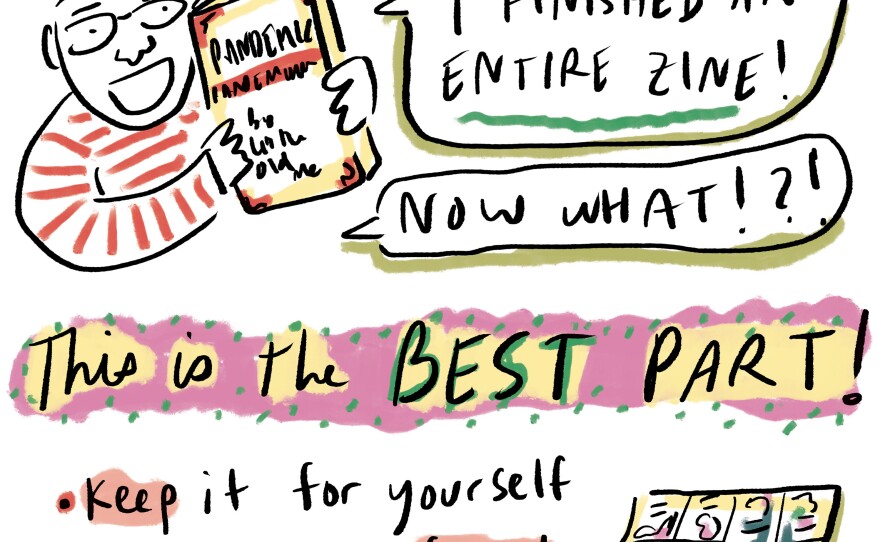 PANDEMIC
by
little
old me
I FINISHED AN
ENTIRE ZINE!
NOW WHAT!?!
This is the BEST PART!
• Keep it for yourself